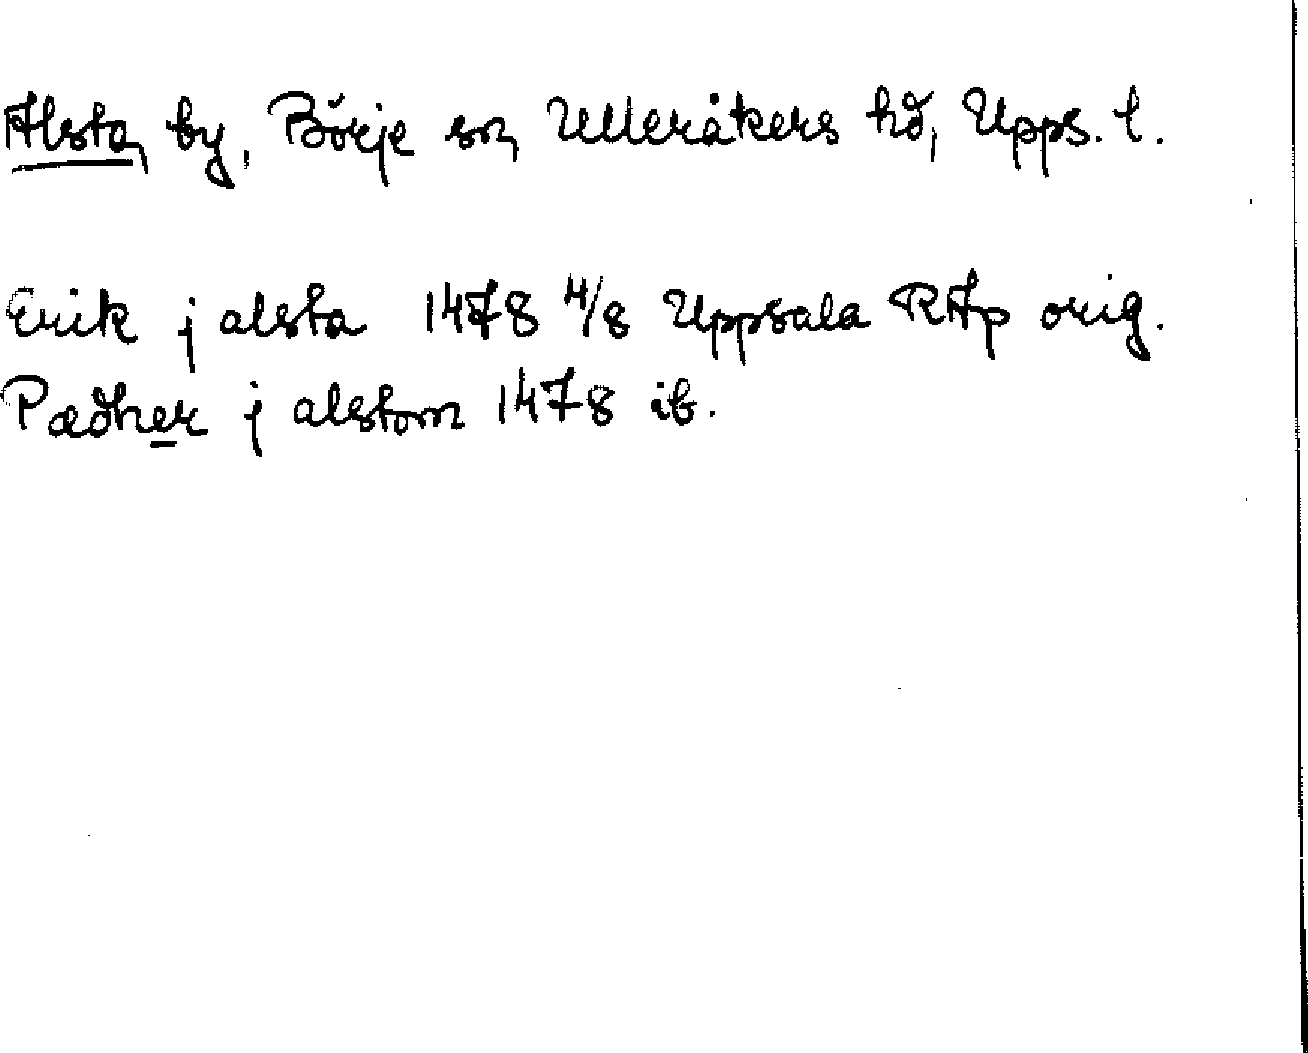 Alsta, by, Börje sn, Ulleråkers hd, Upps. l.
Erik j alsta 1478 4/8 Uppsala RAp orig.
Pædher j alstom 1478 ib.